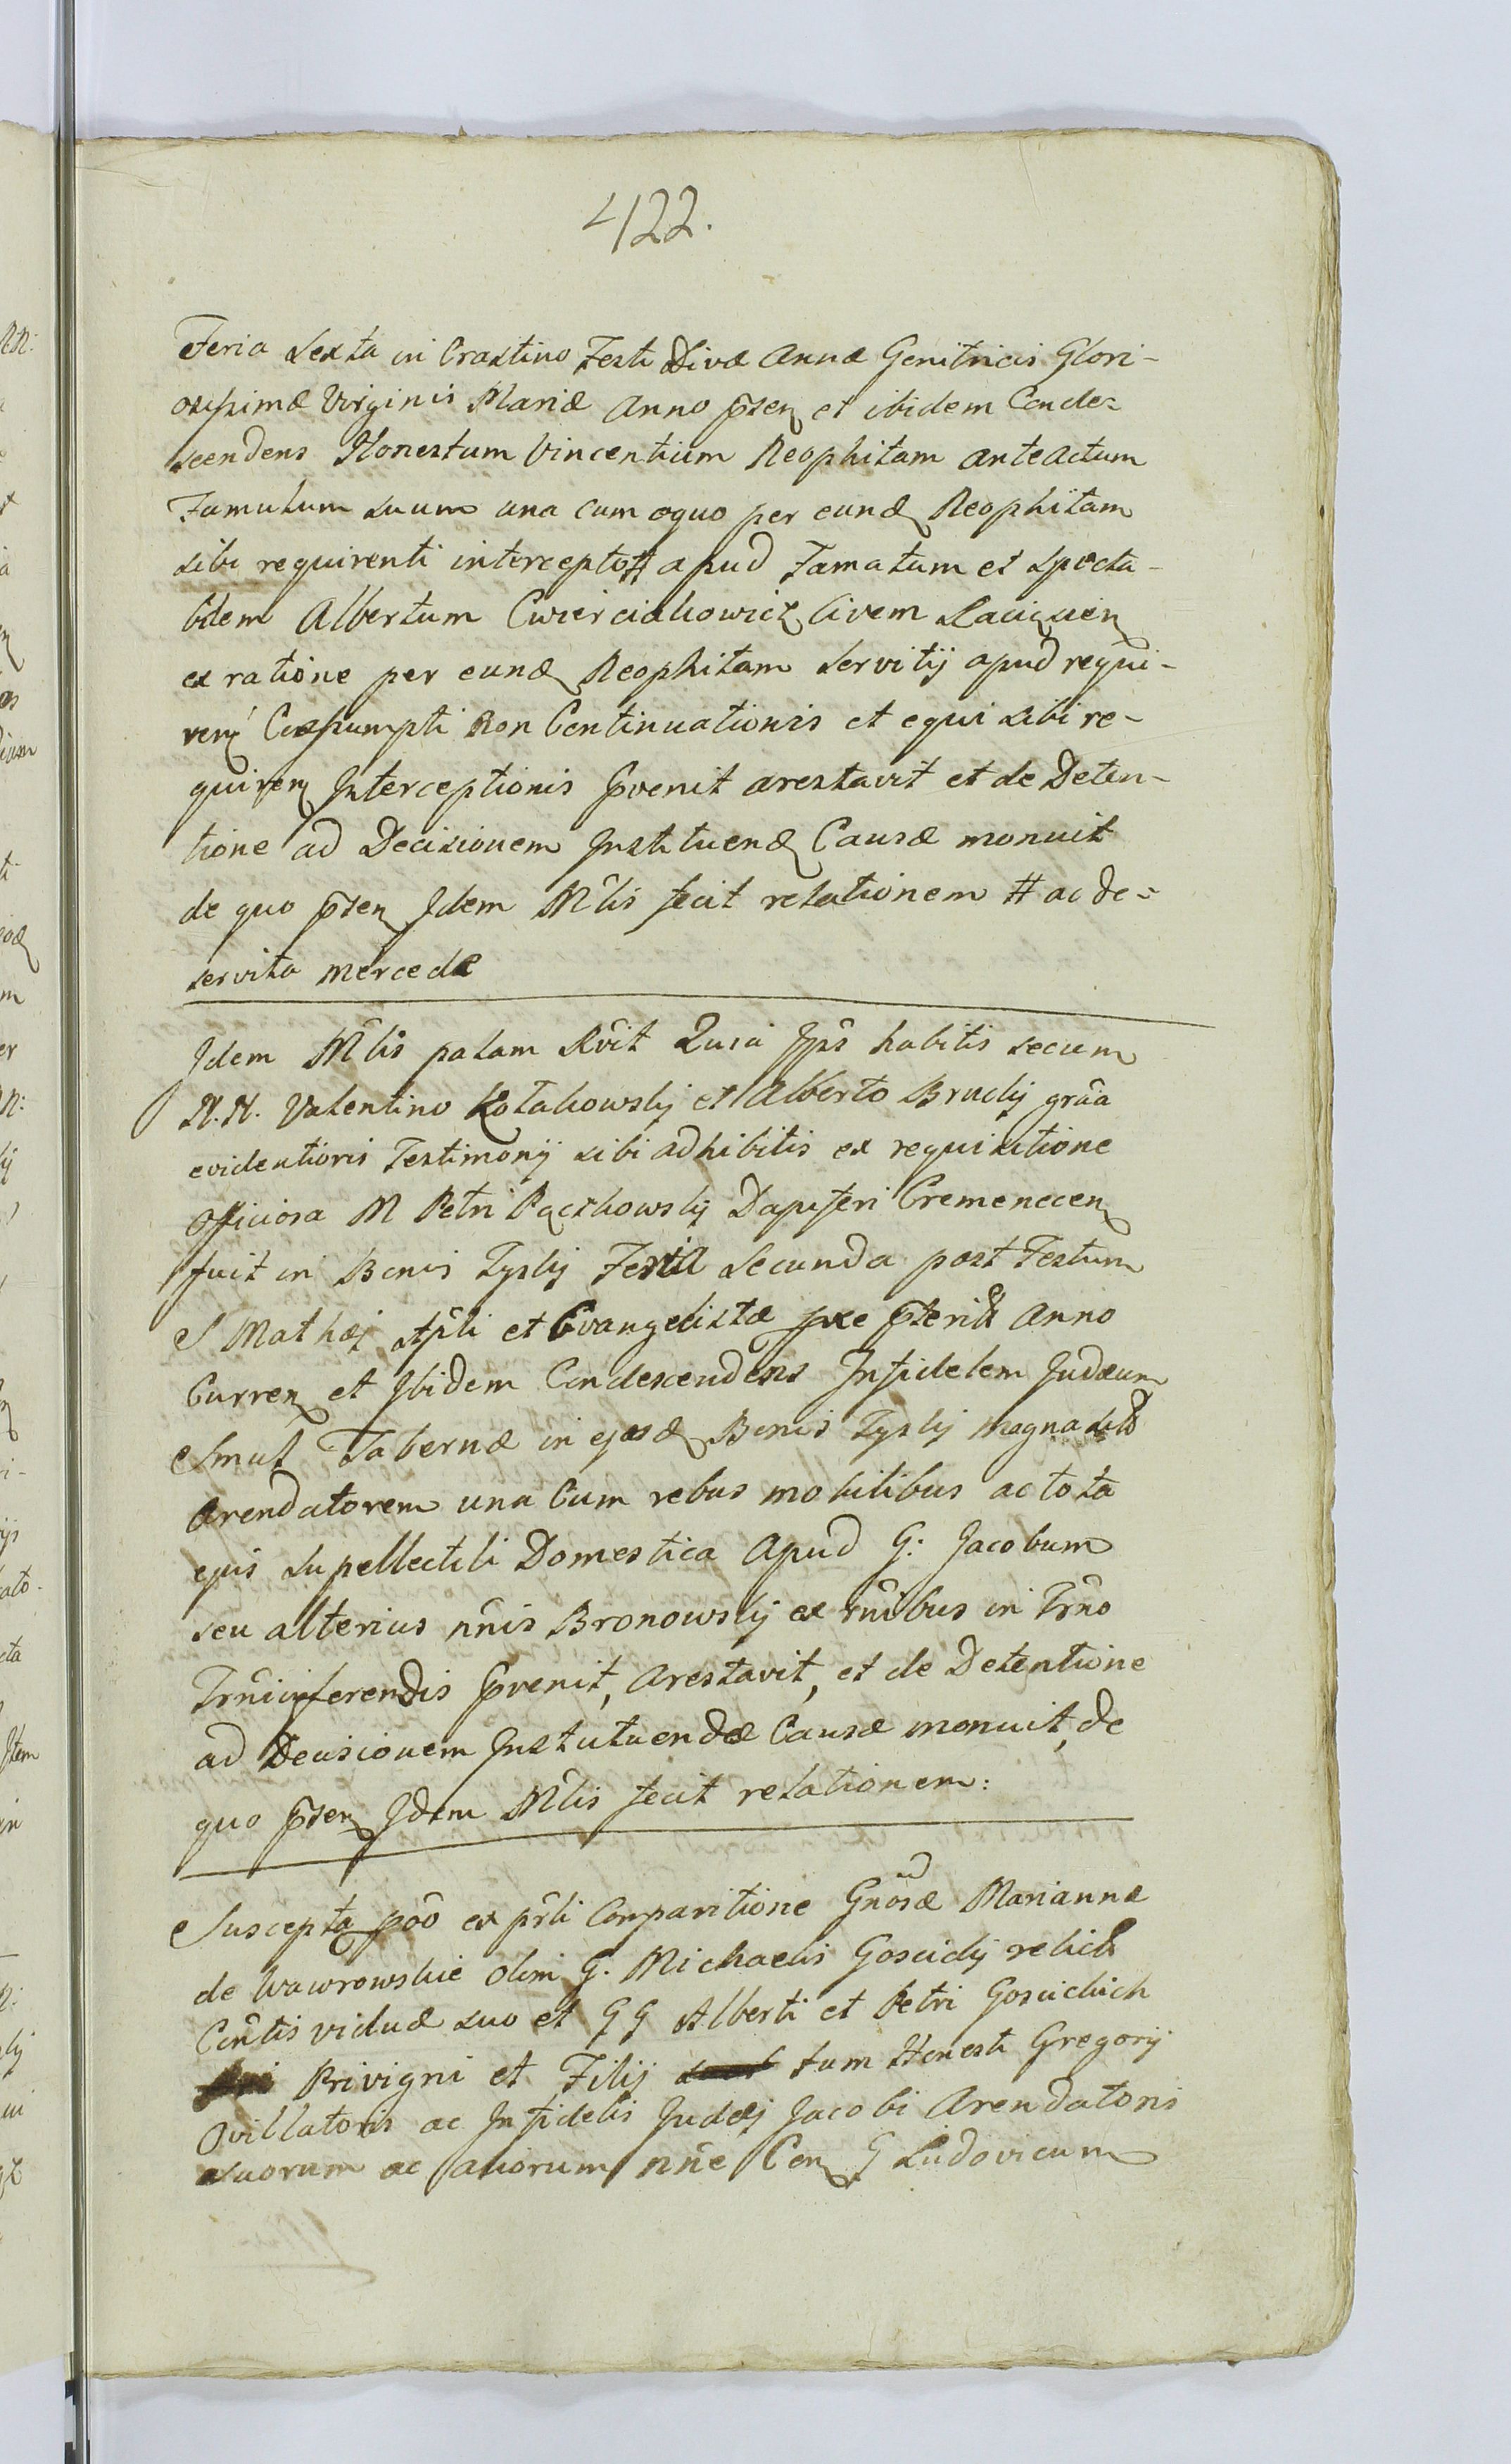 422.
Feria Sexta in Crastino Festi Divæ Annæ Genitricis Glori-
osissimæ Virginis Mariæ Anno p̄sen et ibidem Conde-
scendens Honestum Vincentium Neophitam anteactum
Famulum suum una cum equo per eund Neophitam
sibi requirenti intercepto # apud Famatum et specta-
bilem Albertum Cwierciakowicz Civem
ex ratione per eund Neophitam servitij apud requi-
ren Compti Non Continuationis et equi sibi re-
quiren Interceptionis p̄venit arestavit et de Deten-
tione ad Decisionem Instituend Causæ monuit
de quo p̄sen Idem Mlis fecit relationem # ac de-
servita mercede
Idem Mlis palam Rvit Quia Ips habitis secum
N.N. Valentino Kotakowsky et Alberto Brudy grâa
evidentioris Testimonij sibi adhibitis ex requisitione
officiosa M Petri Pączkowsky Dapiferi Cremenecen
fuit in Bonis Tysky Feria Secunda post Festum
S Mathæj Apli et Evangelistæ p̄xe p̄terit Anno
Curren et Ibidem Condescendens Infidelem Judæum
Smul Tabernæ in ejusd Bonis Tysky
Arendatorem una Cum rebus mobilibus ac tota
ejus supellectili Domestica Apud G: Jacobum
seu alterius nn̄is Bronowsky ex rn̄ibus in Trn̄o
Trn̄i inferendis p̄venit, arestavit, et de Detentione
ad Decisionem Instutuendæ Causæ monuit, de
quo p̄sen Idem Mlis fecit relationem:
Suscepta poo ex prl̄i Comparitione Gnosæ Mariannæ
de Wawrowskie olim G. Michaelis Goscicky relict
Cen̄tis viduæ suo et G G Alberti et Petri Goscickich
Privigni et Filij tum Honesti Gregorij
Ovillatoris ac Infidelis Judæj Jacobi Arendatoris
suorum ac aliorum nn̄e Cen G Ludovicum